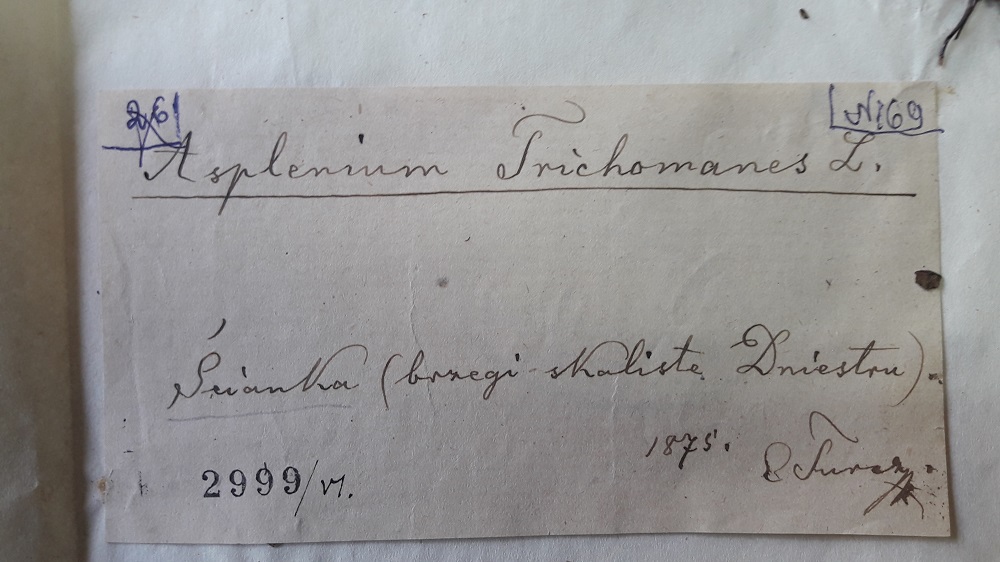 26
N 169
Asplenium Trichomanes L.
Ścianka (brzegi skaliste Dniestru).
1875.
2999/VI.